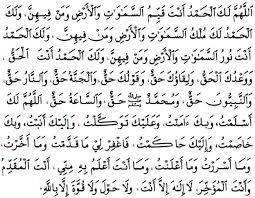 اللَّهُمَّ لَكَ الْحَمْدُ أَنْتَ قَيِّمُ السَّمَوَاتِ وَالْأَرْضِ وَمَنْ فِيهِنَّ، وَلَكَ
الْحَمْدُ لَكَ مُلْكُ السَّمَوَاتِ وَالْأَرْضِ وَمَنْ فِيهِنَّ، وَلَكَ الْحَمْدُ
أَنْتَ نُورُ السَّمَوَاتِ وَالْأَرْضِ وَمَنْ فِيهِنَّ، وَلَكَ الْحَمْدُ أَنْتَ الْحَقُّ،
وَوَعْدُكَ الْحَقُّ، وَلِقَاؤُكَ حَقٌّ، وَقَوْلُكَ حَقٌّ، وَالْجَنَّةُ حَقٌّ، وَالنَّارُ حَقٌّ،
وَالنَّبِيُّونَ حَقٌّ، وَمُحَمَّدٌ ﷺ حَقٌّ، وَالسَّاعَةُ حَقٌّ، اللَّهُمَّ لَكَ
أَسْلَمْتُ، وَبِكَ آمَنْتُ، وَعَلَيْكَ تَوَكَّلْتُ، وَإِلَيْكَ أَنَبْتُ، وَبِكَ
خَاصَمْتُ، وَإِلَيْكَ حَاكَمْتُ، فَاغْفِرْ لِي مَا قَدَّمْتُ، وَمَا أَخَّرْتُ،
وَمَا أَسْرَرْتُ وَمَا أَعْلَنْتُ، وَمَا أَنْتَ أَعْلَمُ بِهِ مِنِّي، أَنْتَ الْمُقَدِّمُ
وَأَنْتَ الْمُؤَخِّرُ، لَا إِلَهَ إِلَّا أَنْتَ، وَلَا حَوْلَ وَلَا قُوَّةَ إِلَّا بِاللَّهِ